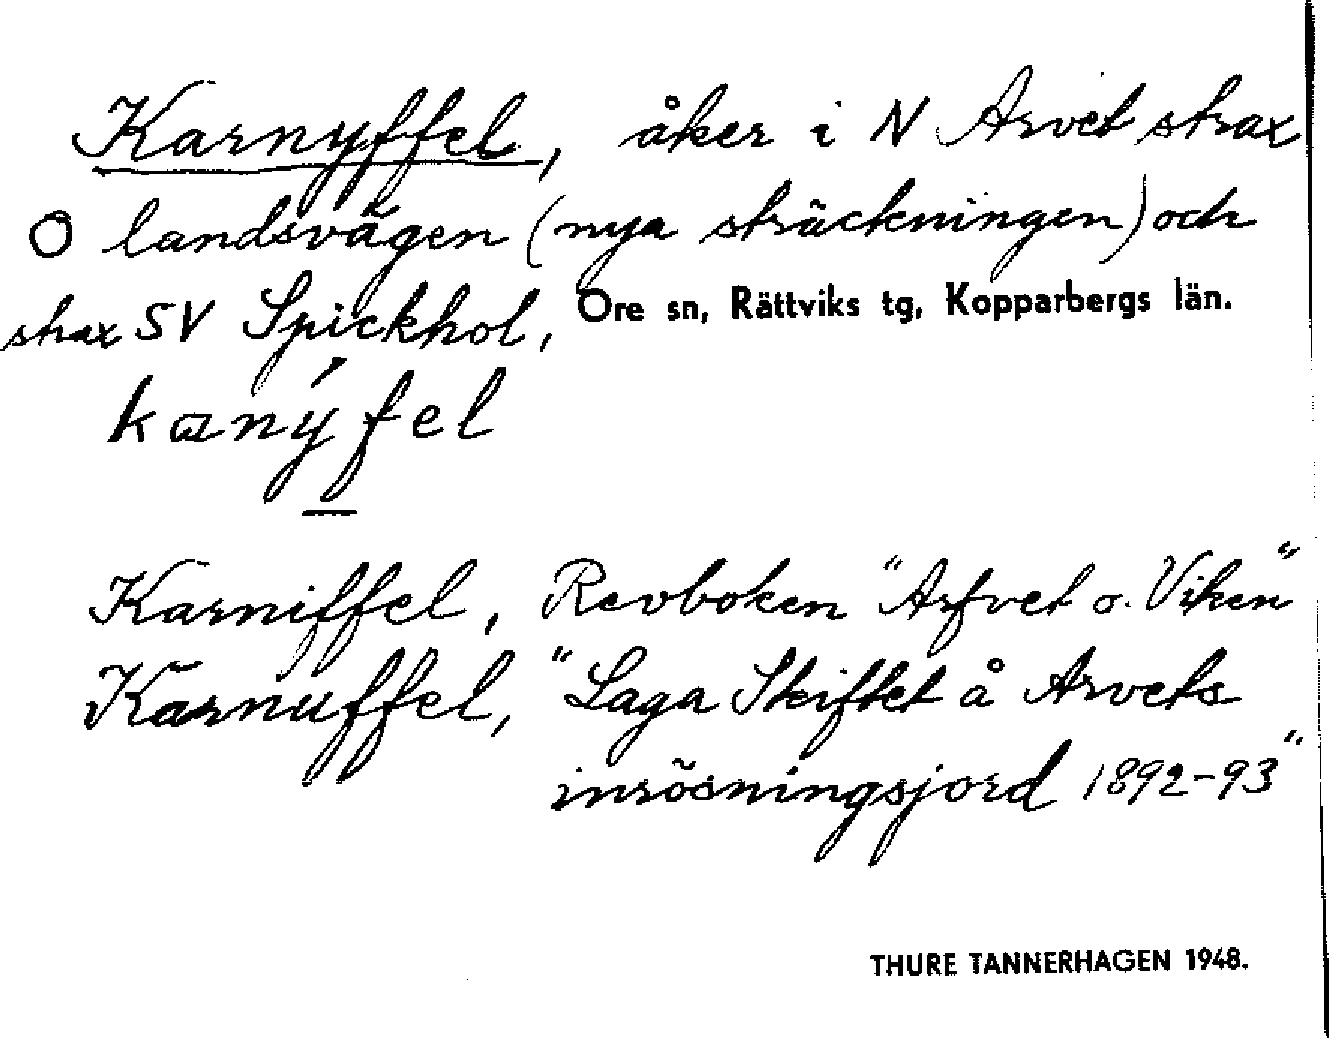 Karnyffel, åker i N Arvet strax
O landsvägen (nya sträckningen) och
strax SV Spickhol, Ore sn, Rättviks tg, Kopparbergs län.
kaný̱fel
Karniffel, Revboken "Arfvet o. Viken"
Karnuffel, "Laga Skiftet å Arvets
inrösningsjord 1892-93"
THURE TANNERHAGEN 1948.